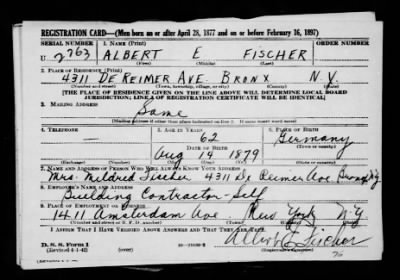 REGISTRATION CARD—(Men born on or after April 28, 1877 and on or before February 16, 1897)
SERIAL NUMBER
1. NAME (Print)
U 2763
ALBERT E FISCHER
(First) (Middle) (Last)
2. PLACE OF RESIDENCE (Print)
4311 DE REIMER AVE. BRONX N.Y.
(Number and street) (Town, township, village, or city) (County) (State)
[THE PLACE OF RESIDENCE GIVEN ON THE LINE ABOVE WILL DETERMINE LOCAL BOARD
JURISDICTION; LINE 2 OF REGISTRATION CERTIFICATE WILL BE IDENTICAL]
3. MAILING ADDRESS
Same
[Mailing address if other than place indicated on line 2. If same insert word same]
4. TELEPHONE
5. AGE IN YEARS
62
6. PLACE OF BIRTH
Germany
DATE OF BIRTH
Aug 19 1879
(Exchange) (Number) (Mo.) (Day) (Yr.) (State or country)
7. NAME AND ADDRESS OF PERSON WHO WILL ALWAYS KNOW YOUR ADDRESS
Mrs. Mildred Fischer 4311 De Reimer Ave. Bronx NY
8. EMPLOYER'S NAME AND ADDRESS
Building Contractor-Self
9. PLACE OF EMPLOYMENT OR BUSINESS
1411 Amsterdam Ave New York NY
(Number and street or R. F. D. number) (Town) (County) (State)
I AFFIRM THAT I HAVE VERIFIED ABOVE ANSWERS AND THAT THEY ARE TRUE.
D. S. S. Form 1
(Revised 4-1-42)
Albert E Fischer